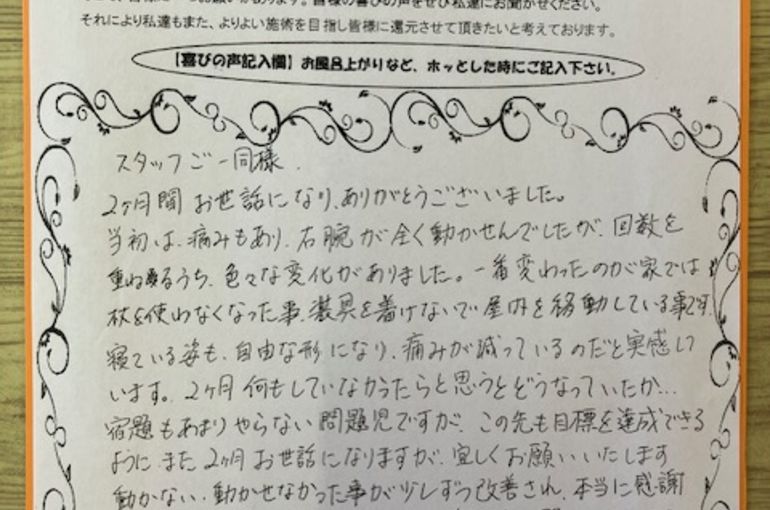 お願いがあります。皆様の喜びの声をぜひ私達にお聞かせください。
それにより私達もまた、よりよい施術を目指し皆様に還元させて頂きたいと考えております。
【喜びの声記入欄】お風呂上がりなど、ホッとした時にご記入下さい。
スタッフご一同様.
2ヶ月間お世話になり、ありがとうございました。
当初は、痛みもあり、右腕が全く動かせんでしたが、回数を
重ねるうち、色々な変化がありました。一番変わったのが家では
杖を使わなくなった事、装具を着けないで屋内を移動している事です。
寝ている姿も、自由な形になり、痛みが減っているのだと実感して
います。2ヶ月何もしていなかったらと思うとどうなっていたか...
宿題もあまりやらない問題児ですが、この先も目標を達成できる
ように また2ヶ月お世話になりますが、宜しくお願いいたします
動かない、動かせなかった事が少しずつ改善され、本当に感謝